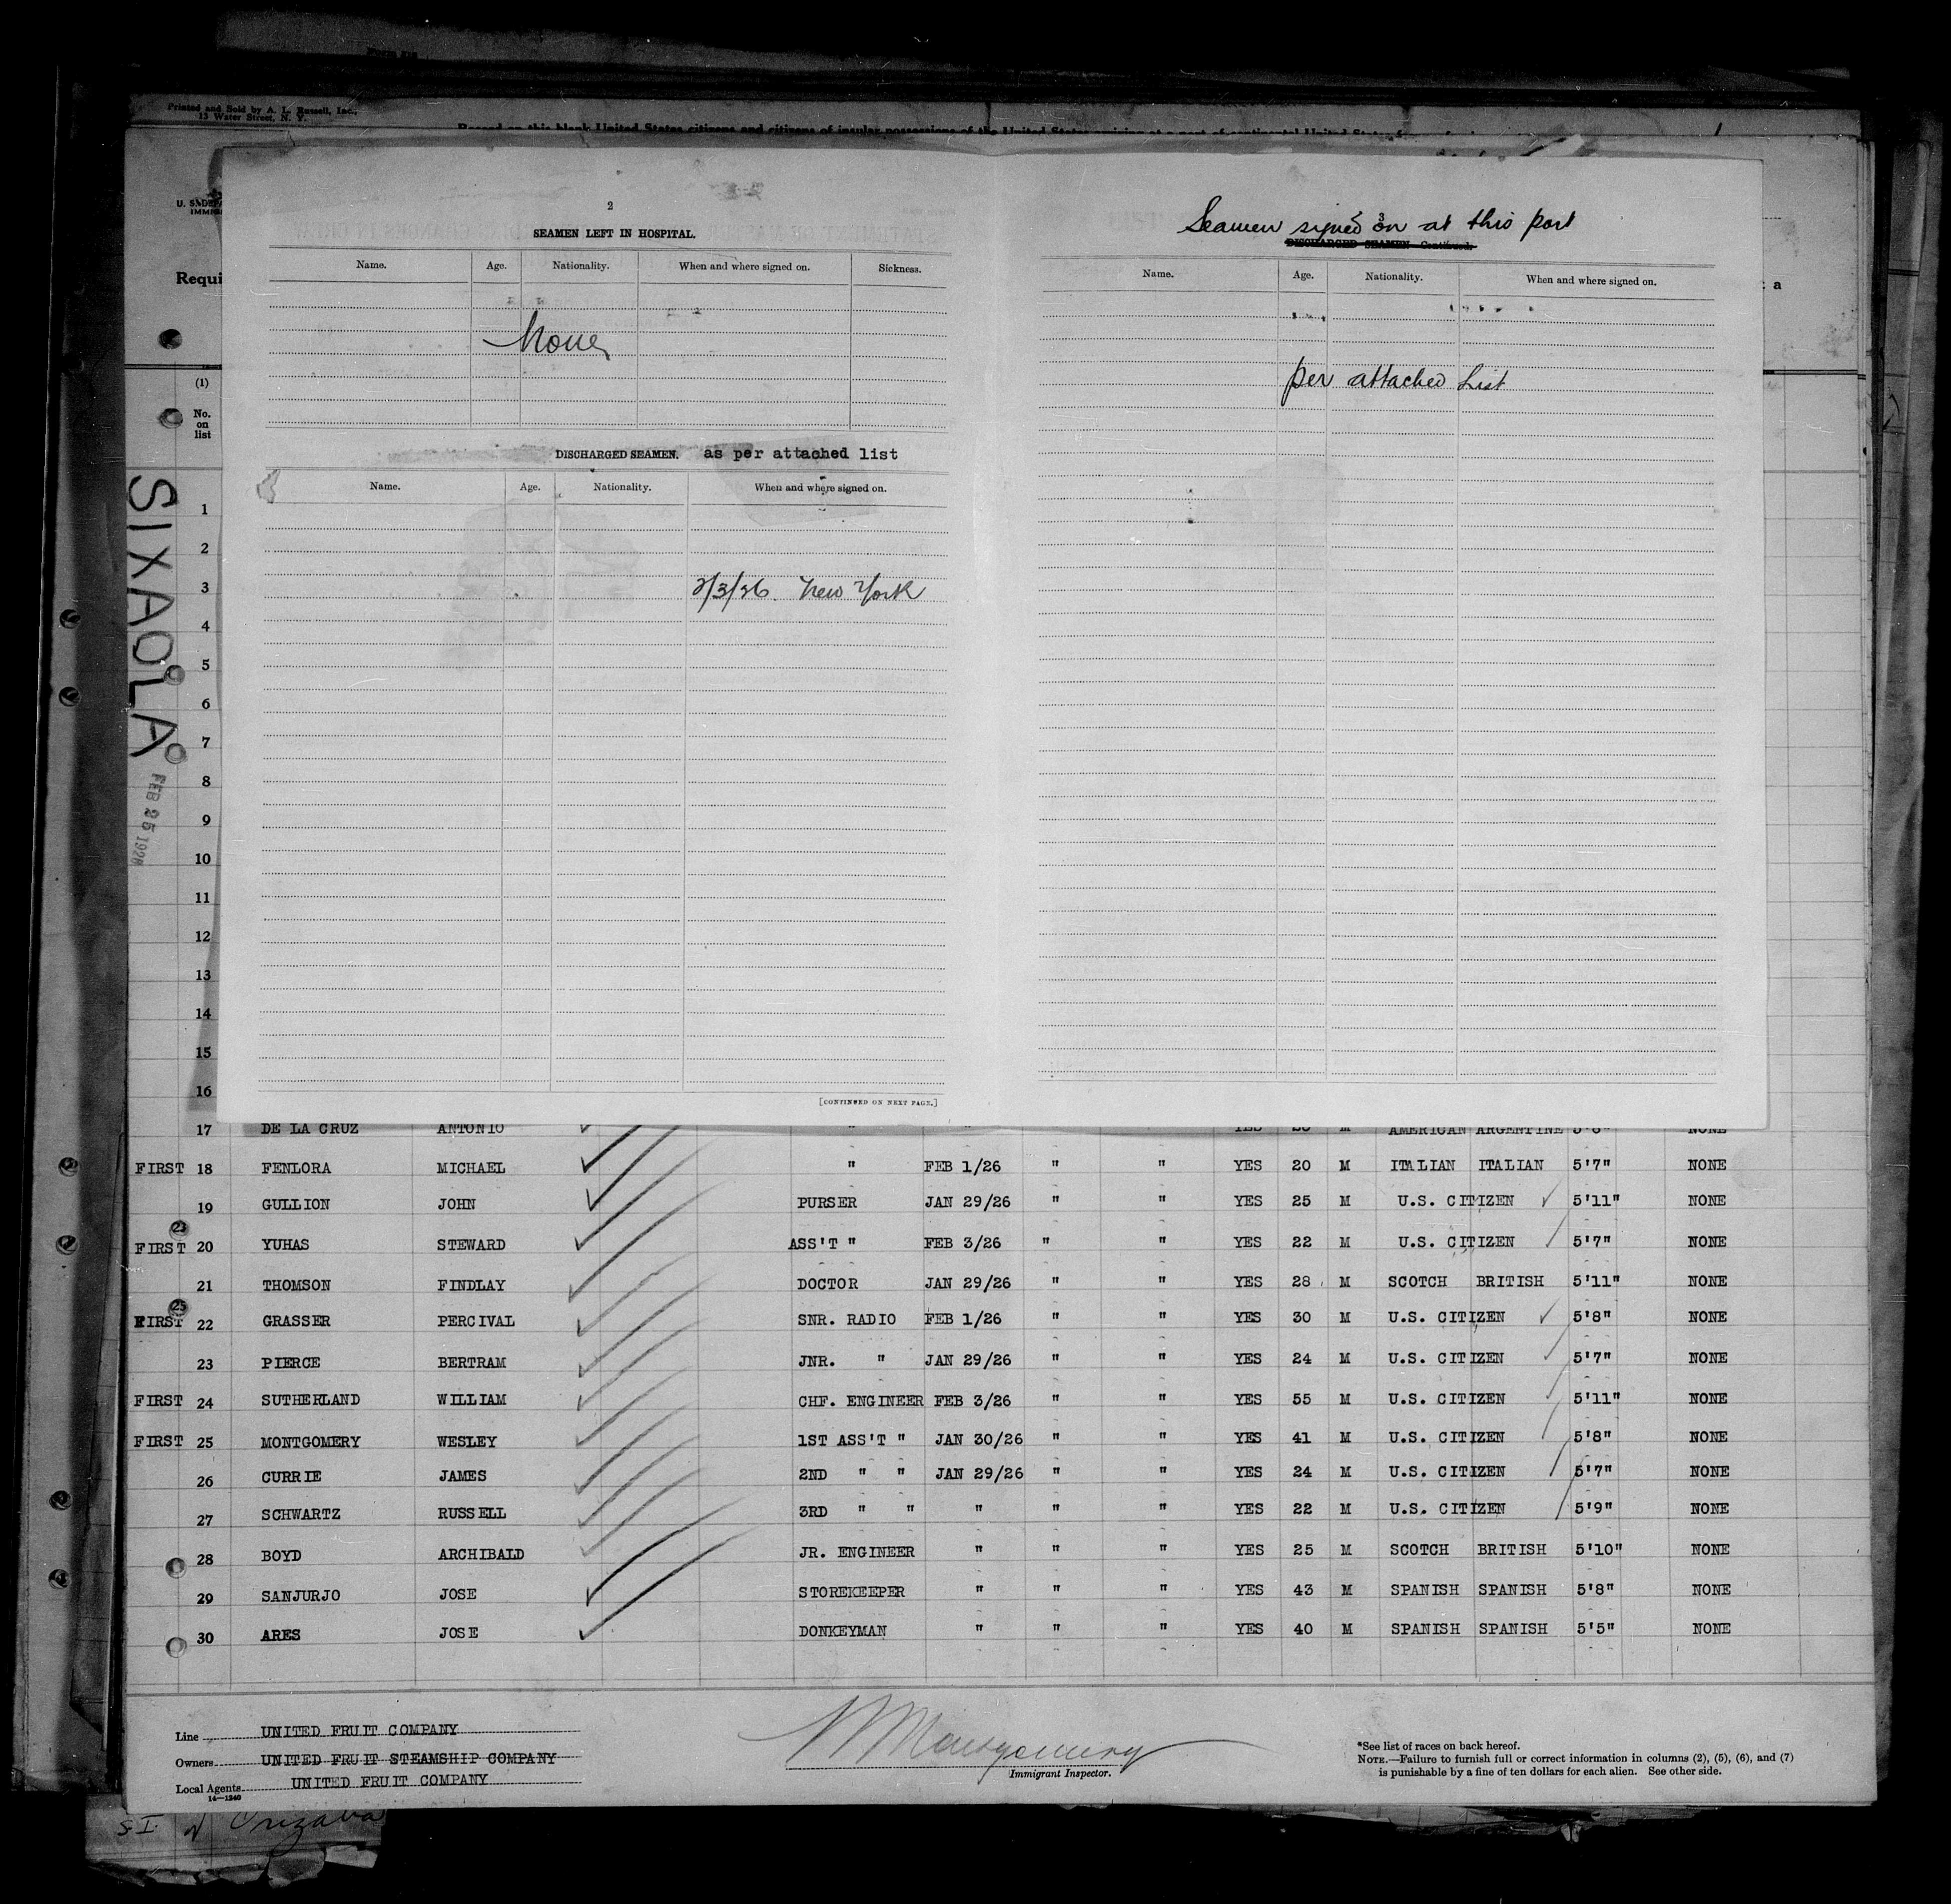 Printed and Sold by A. L. Russell, Inc.,
13 Water Street, N. Y.
Record on this blank United States citizens and citizens of insular possessions of the United States arriving at a port of continental United States
Requi
a
2
SEAMEN LEFT IN HOSPITAL.
Name. Age. Nationality. When and where signed on. Sickness.
None
DISCHARGED SEAMEN. as per attached list
Name. Age. Nationality. When and where signed on.
2/3/26. New York
[CONTINUED ON NEXT PAGE.]
3
Seamen signed on at this port
DISCHARGED SEAMEN—Continued.
Name. Age. Nationality. When and where signed on.
per attached List
(1)
No.
on
list
SIXAOLA
FEB 25 1926
1
2
3
4
5
6
7
8
9
10
11
12
13
14
15
16
17 DE LA CRUZ ANTONIO " " YES M AMERICAN ARGENTINE NONE
FIRST 18 FENLORA MICHAEL " FEB 1/26 " " YES 20 M ITALIAN ITALIAN 5'7" NONE
19 GULLION JOHN PURSER JAN 29/26 " " YES 25 M U.S. CITIZEN ✓ 5'11" NONE
23
FIRST 20 YUHAS STEWARD ASS'T " FEB 3/26 " " YES 22 M U.S. CITIZEN 5'7" NONE
21 THOMSON FINDLAY DOCTOR JAN 29/26 " " YES 28 M SCOTCH BRITISH 5'11" NONE
25
FIRST 22 GRASSER PERCIVAL SNR. RADIO FEB 1/26 " " YES 30 M U.S. CITIZEN ✓ 5'8" NONE
23 PIERCE BERTRAM JNR. " JAN 29/26 " " YES 24 M U.S. CITIZEN 5'7" NONE
FIRST 24 SUTHERLAND WILLIAM CHF. ENGINEER FEB 3/26 " " YES 55 M U.S. CITIZEN 5'11" NONE
FIRST 25 MONTGOMERY WESLEY 1ST ASS'T " JAN 30/26 " " YES 41 M U.S. CITIZEN 5'8" NONE
26 CURRIE JAMES 2ND " " JAN 29/26 " " YES 24 M U.S. CITIZEN 5'7" NONE
27 SCHWARTZ RUSSELL 3RD " " " " " YES 22 M U.S. CITIZEN 5'9" NONE
28 BOYD ARCHIBALD JR. ENGINEER " " " YES 25 M SCOTCH BRITISH 5'10" NONE
29 SANJURJO JOSE STOREKEEPER " " " YES 43 M SPANISH SPANISH 5'8" NONE
30 ARES JOSE DONKEYMAN " " " YES 40 M SPANISH SPANISH 5'5" NONE
Line UNITED FRUIT COMPANY
Owners UNITED FRUIT STEAMSHIP COMPANY
Local Agents UNITED FRUIT COMPANY
14—1240
Montgomery
Immigrant Inspector.
*See list of races on back hereof.
NOTE.—Failure to furnish full or correct information in columns (2), (5), (6), and (7)
is punishable by a fine of ten dollars for each alien. See other side.
S.I. Orizaba